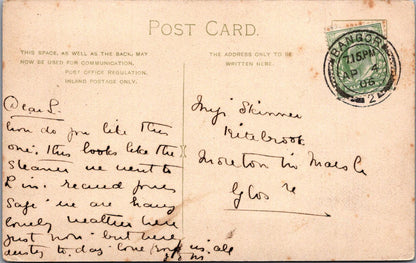 POST CARD.
THIS SPACE, AS WELL AS THE BACK, MAY
NOW BE USED FOR COMMUNICATION.
POST OFFICE REGULATION.
INLAND POSTAGE ONLY.
THE ADDRESS ONLY TO BE
WRITTEN HERE.
BANGOR
7.15 PM
AP
08
2
Dear S.
How do you like this
one. This looks like the
steamer we went to
L in.
safe we are having
lovely weather here
just now but here
to day love from us all
Miss Skinner
Kitebrook
Moreton in Marsh
Glos